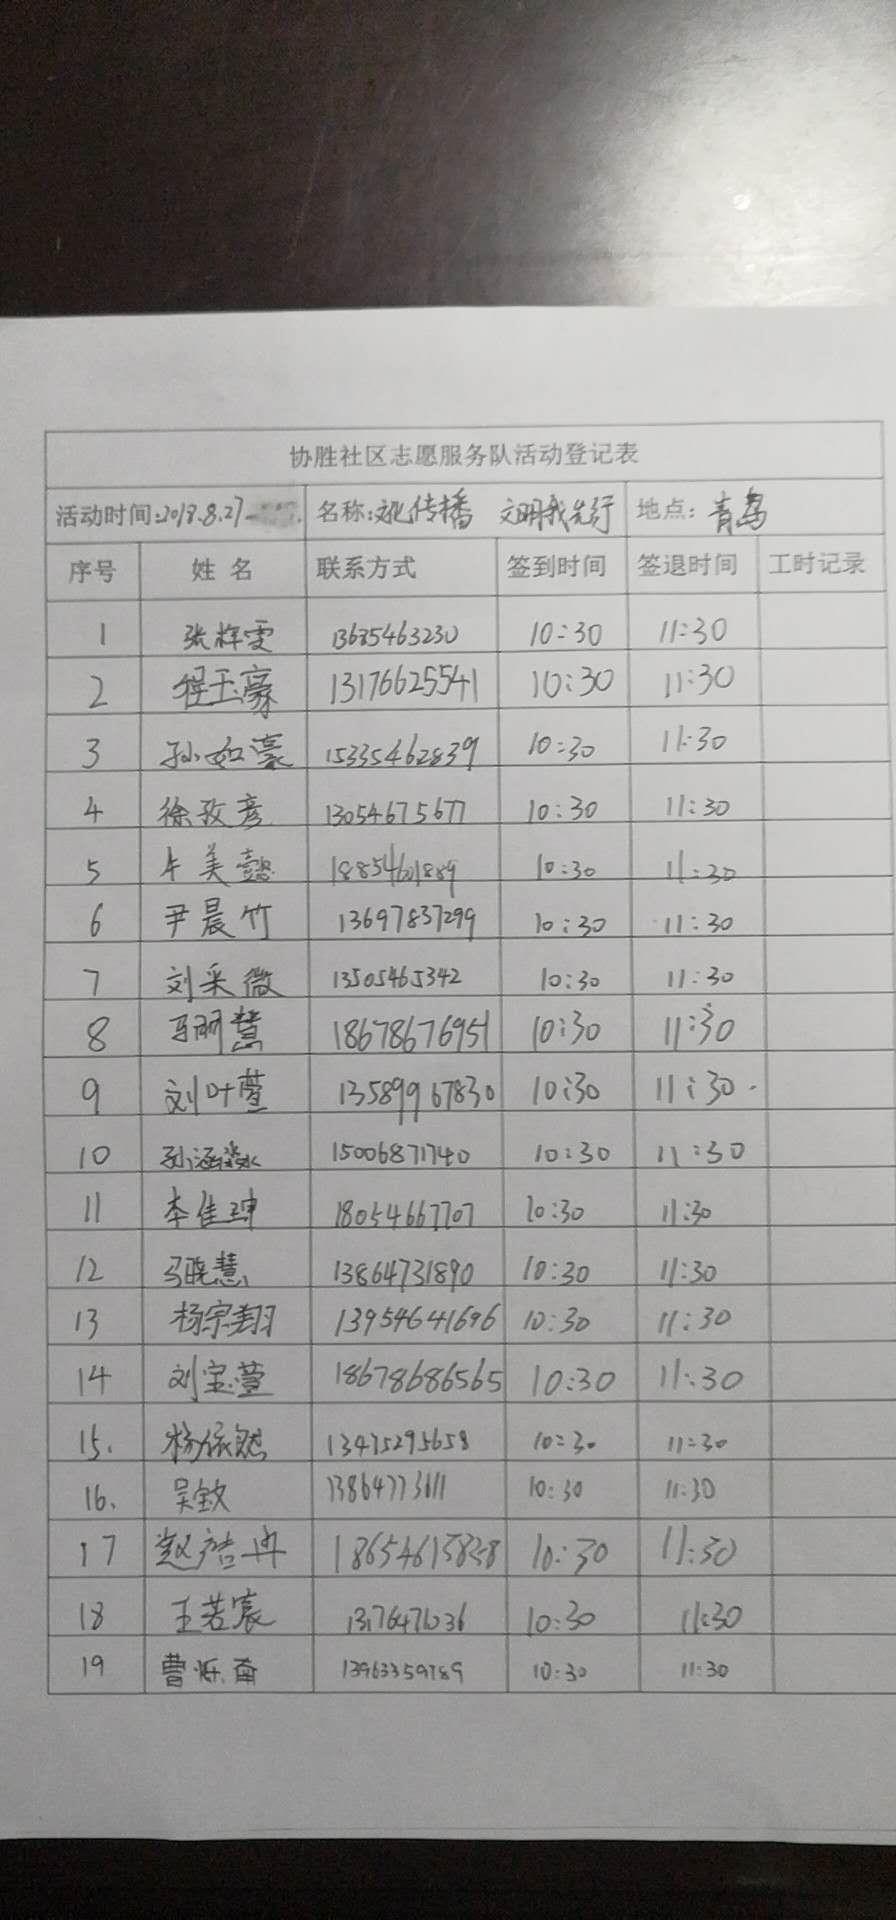 协胜社区志愿服务队活动登记表
活动时间:2018.8.27 名称:文化传播 文明我先行 地点:青岛
序号 姓名 联系方式 签到时间 签退时间 工时记录
1 张梓雯 13685463230 10:30 11:30
2 程玉豪 13176625541 10:30 11:30
3 孙如濠 15335462839 10:30 11:30
4 徐孜彦 13054675677 10:30 11:30
5 牛美懿 18854601889 10:30 11:30
6 尹晨竹 13697837299 10:30 11:30
7 刘采微 13505465342 10:30 11:30
8 马丽慧 18678676951 10:30 11:30
9 刘叶萱 13589967830 10:30 11:30
10 孙涵 15006871740 10:30 11:30
11 李佳珅 18054667707 10:30 11:30
12 马晓慧 13864731890 10:30 11:30
13 杨宗翔 13954641696 10:30 11:30
14 刘宝萱 18678686565 10:30 11:30
15. 杨依然 13475295658 10:30 11:30
16. 吴钦 13864773611 10:30 11:30
17 赵洁冉 10:30 11:30
18 王若宸 13176471036 10:30 11:30
19 曹 13963359789 10:30 11:30